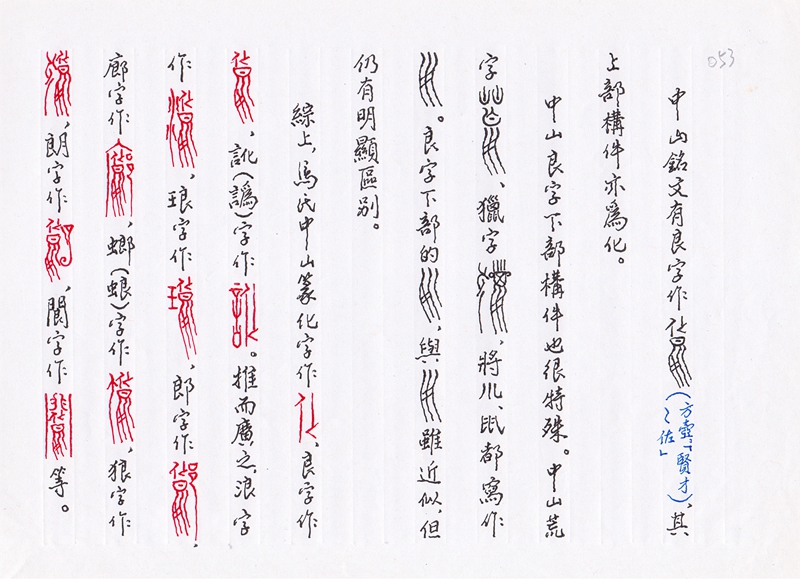 053
中山銘文有良字作（方壺「賢才良佐」），其
上部構件亦爲化。
中山良字下部構件也很特殊。中山荒
字、獵字，將㐬、鼠都寫作
。良字下部的，與雖近似，但
仍有明顯區别。
綜上，馮氏中山篆化字作，良字作
，訛（譌）字作。推而廣之，浪字
作，琅字作，郎字作，
廊字作，螂（蜋）字作，狼字作
，朗字作，閬字作等。